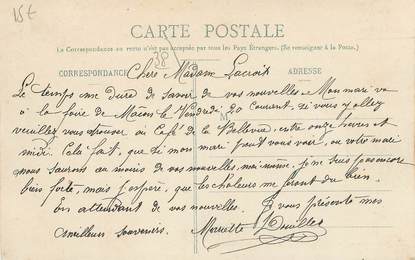 15€
CARTE POSTALE
La Correspondance au recto n'est pas acceptée par tous les Pays Étrangers. (Se renseignent à la Poste.)
38
CORRESPONDANCE
ADRESSE
Chère Madame Lacroix
Le temps me dure de savoir de vos nouvelles. Mon mari va
à la foire de Mâcon le Vendredi 20 courant, si vous y allez
veuillez vous trouver au Café de la Bellevue, entre onze heures et
midi. Cela fait, que si mon mari peut vous voir, ou votre mari
nous saurons au moins de vos nouvelles, moi-même, je ne suis pas encore
bien forte, mais j'espère, que les chaleurs me feront du bien.
En attendant de vos nouvelles. Je vous présente mes
meilleurs souvenirs. Mariette